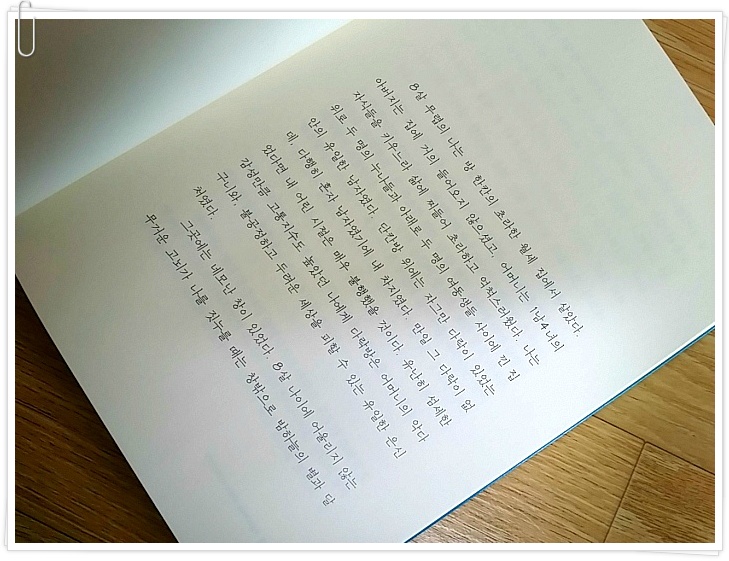 8살 무렵의 나는 방 한칸의 초라한 월세 집에서 살았다.
아버지는 집에 거의 들어오지 않으셨고, 어머니는 1남4녀의
자식들을 키우느라 삶에 찌들어 초라하고 억척스러웠다. 나는
위로 두 명의 누나들과 아래로 두 명의 여동생들 사이에 낀 집
안의 유일한 남자였다. 단칸방 위에는 자그만 다락이 있었는
데, 다행히 혼자 남자였기에 내 차지였다. 만일 그 다락이 없
었다면 내 어린 시절은 매우 불행했을 것이다. 유난히 섬세한
감성만큼 고통지수도 높았던 나에게 다락방은 어머니의 악다
구니와, 불공정하고 두려운 세상을 피할 수 있는 유일한 은신
처였다.
그곳에는 네모난 창이 있었다. 8살 나이에 어울리지 않는
무거운 고뇌가 나를 짓누를 때는 창밖으로 밤하늘의 별과 달